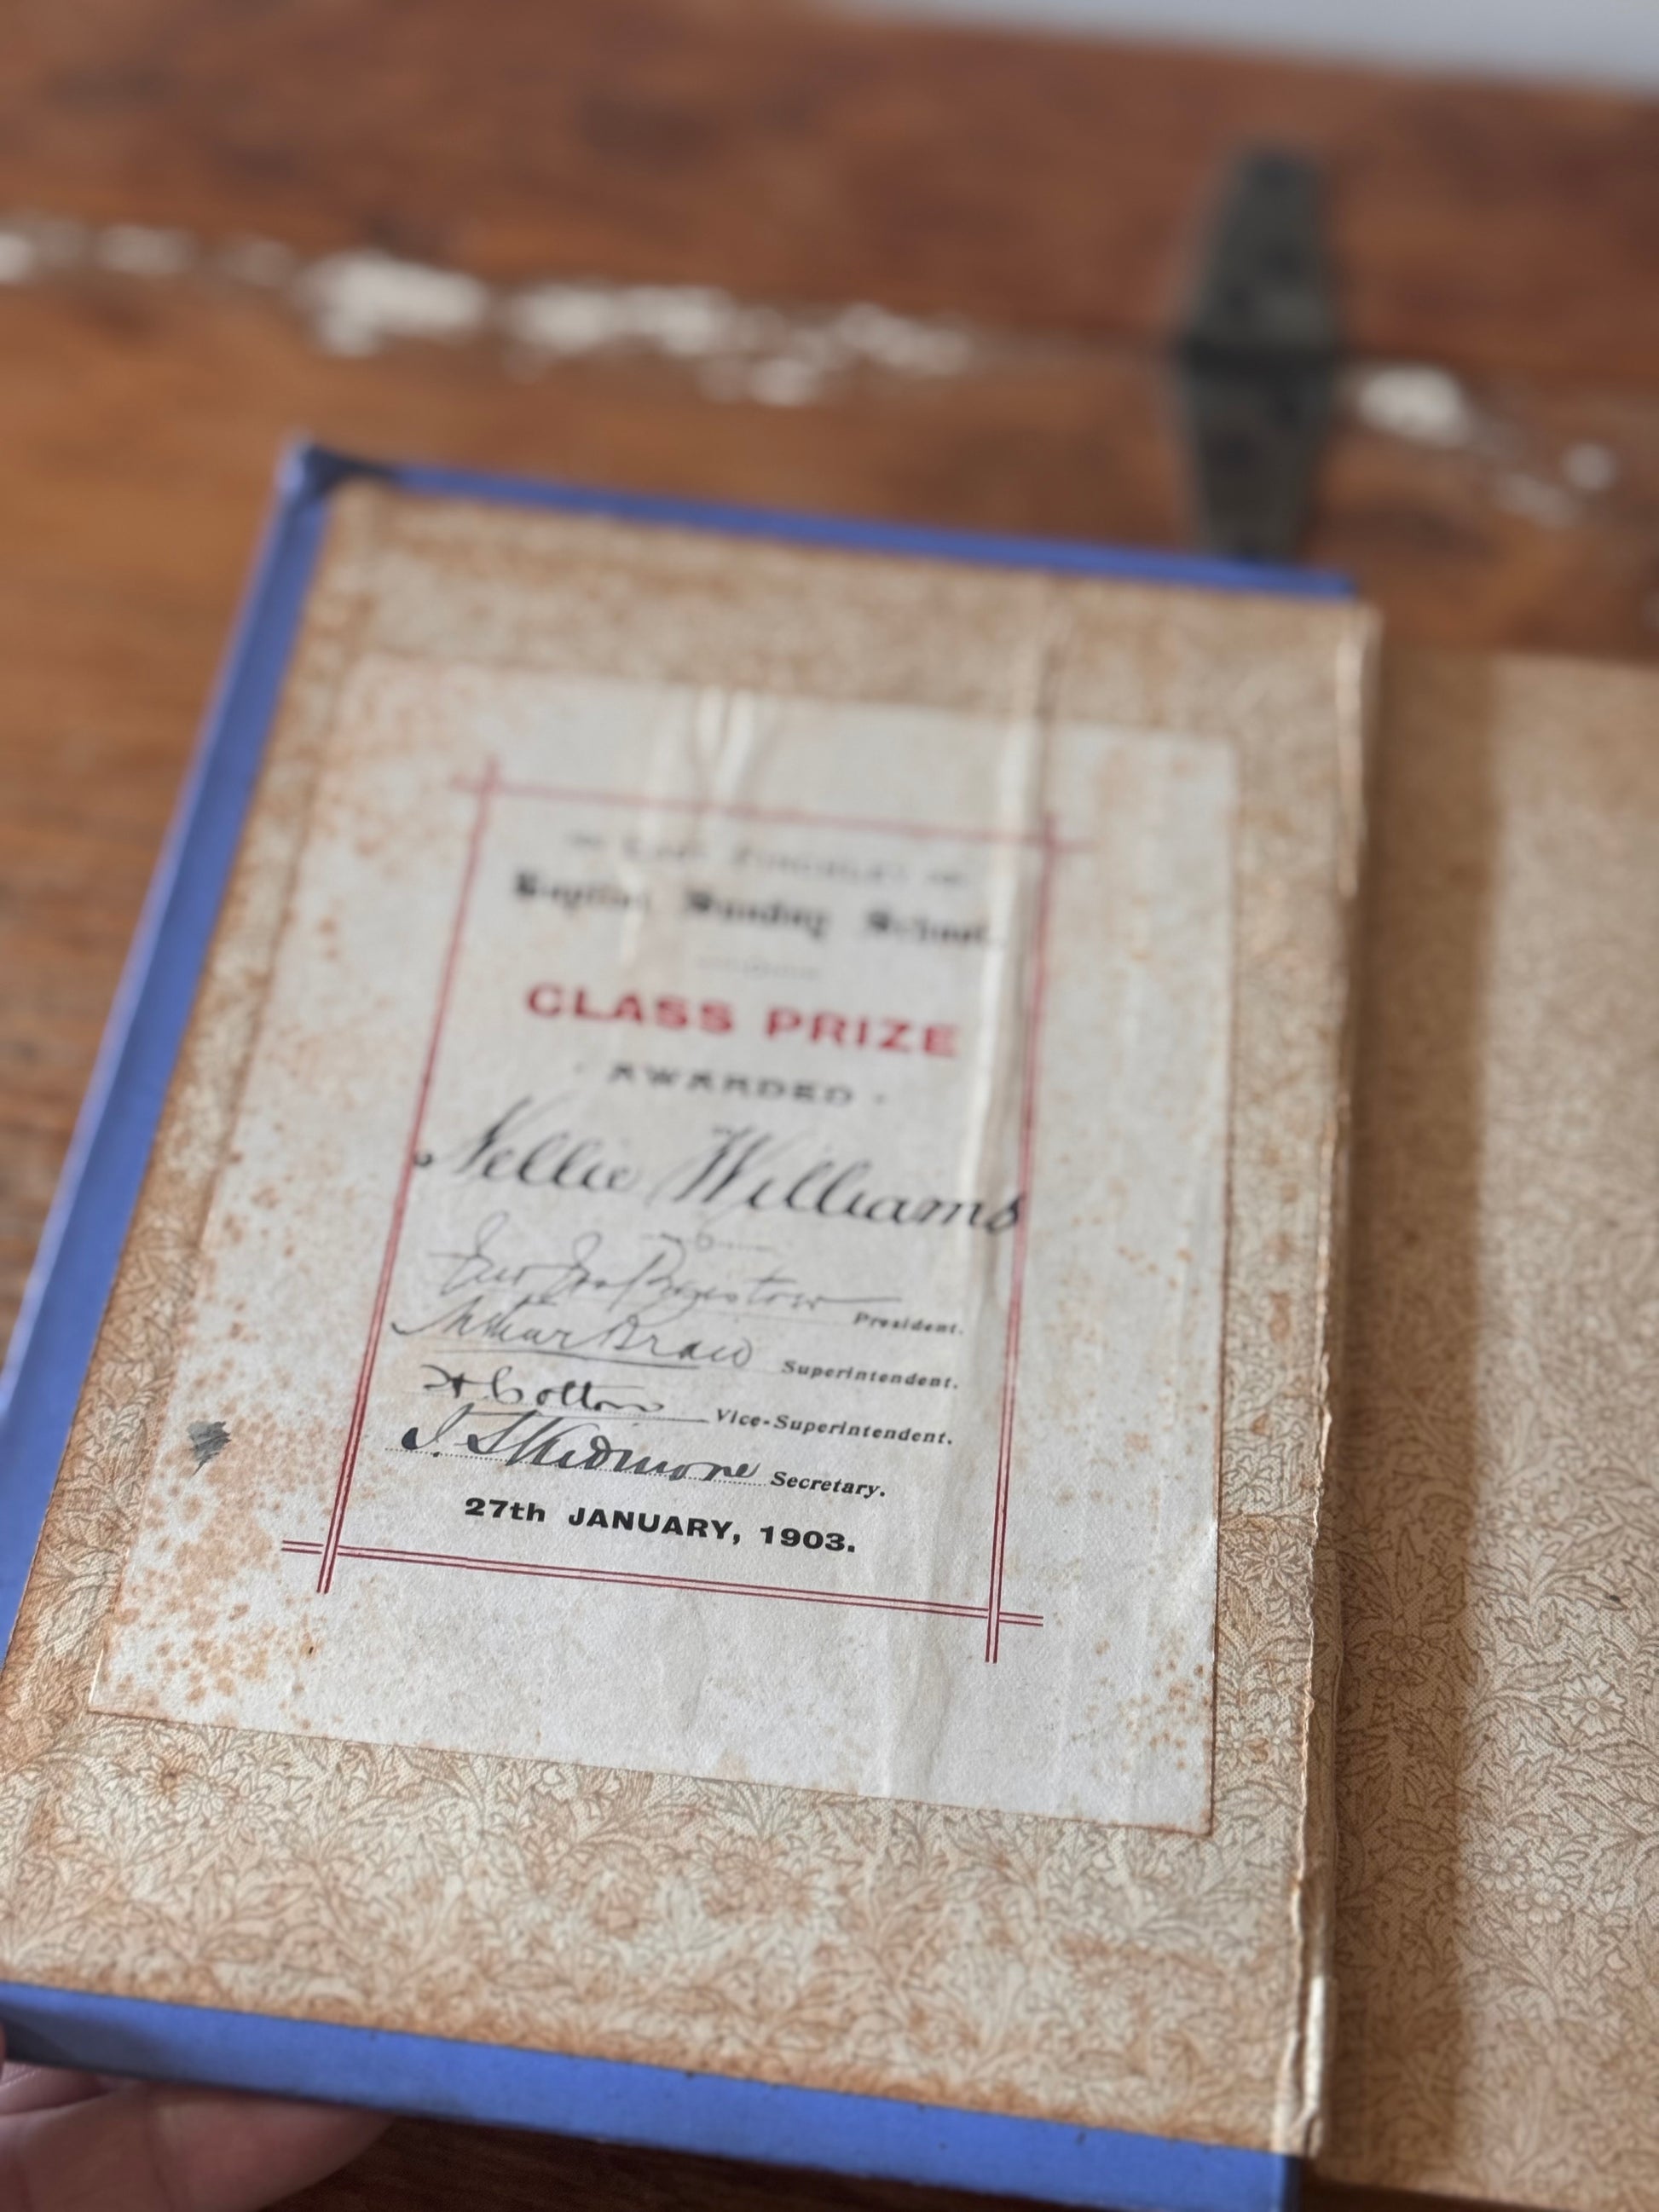 East Finchley
Baptist Sunday School.
CLASS PRIZE
· AWARDED ·
Nellie Williams
President.
Arthur Braw Superintendent.
H Cotton Vice-Superintendent.
J. Skidmore Secretary.
27th JANUARY, 1903.